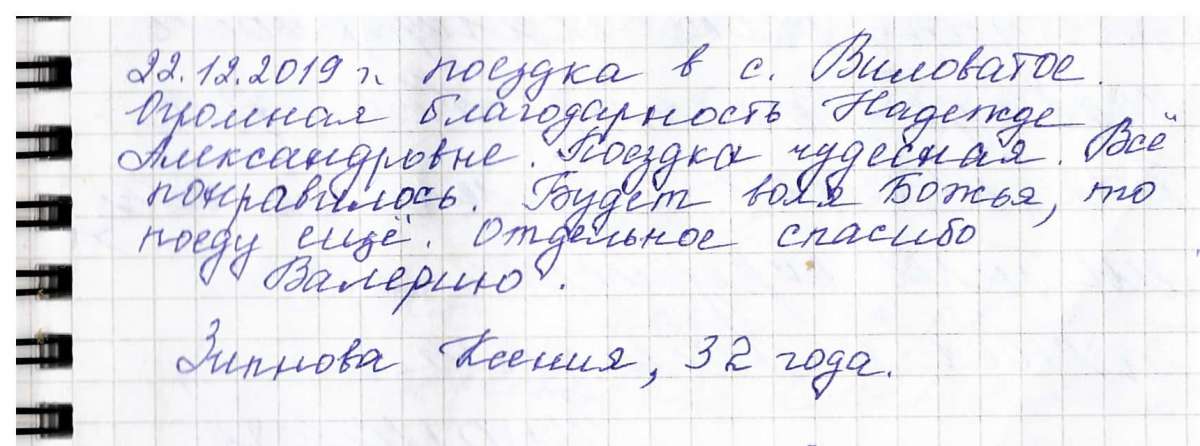 22.12.2019 г. поездка в с. Виловатое.
Огромная благодарность Надежде
Александровне. Поездка чудесная. Всё
понравилось. Будет воля Божья, то
поеду ещё. Отдельное спасибо
Валерию.
Зипнова Ксения, 32 года.